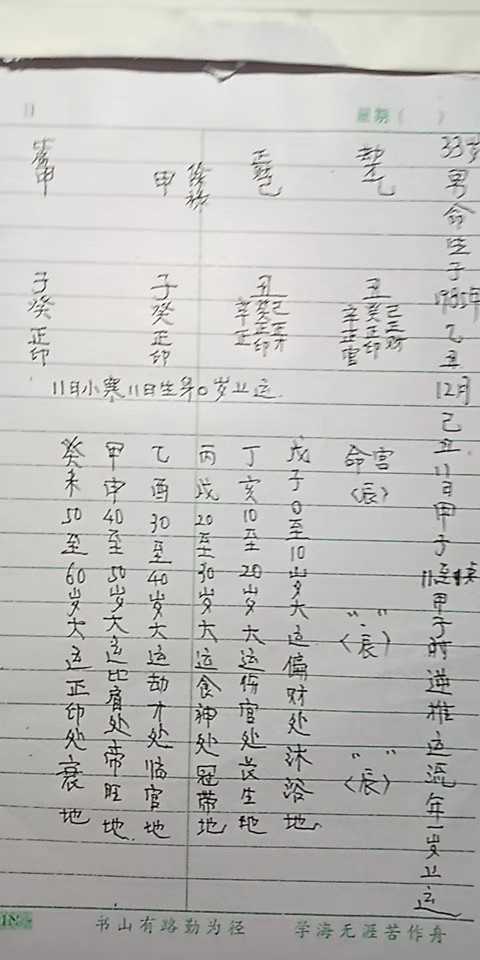 星期（ ）
33岁男命生于1985年乙丑12月己丑11日甲子11至1点甲子时逆推运流年一岁上运
劫才乙
丑
己正财
癸正印
辛正官
正财己
丑
己正才
癸正印
辛正
日柱甲
子癸正印
甲
子癸正印
11日小寒11日生第0岁上运
命宫〈辰〉
〃〃〈辰〉
〃〃〈辰〉
戊子0至10岁大运偏财处沐浴地
丁亥10至20岁大运伤官处长生地
丙戌20至30岁大运食神处冠带地
乙酉30至40岁大运劫才处临官地
甲申40至50岁大运比肩处帝旺地
癸未50至60岁大运正印处衰地
书山有路勤为径 学海无涯苦作舟